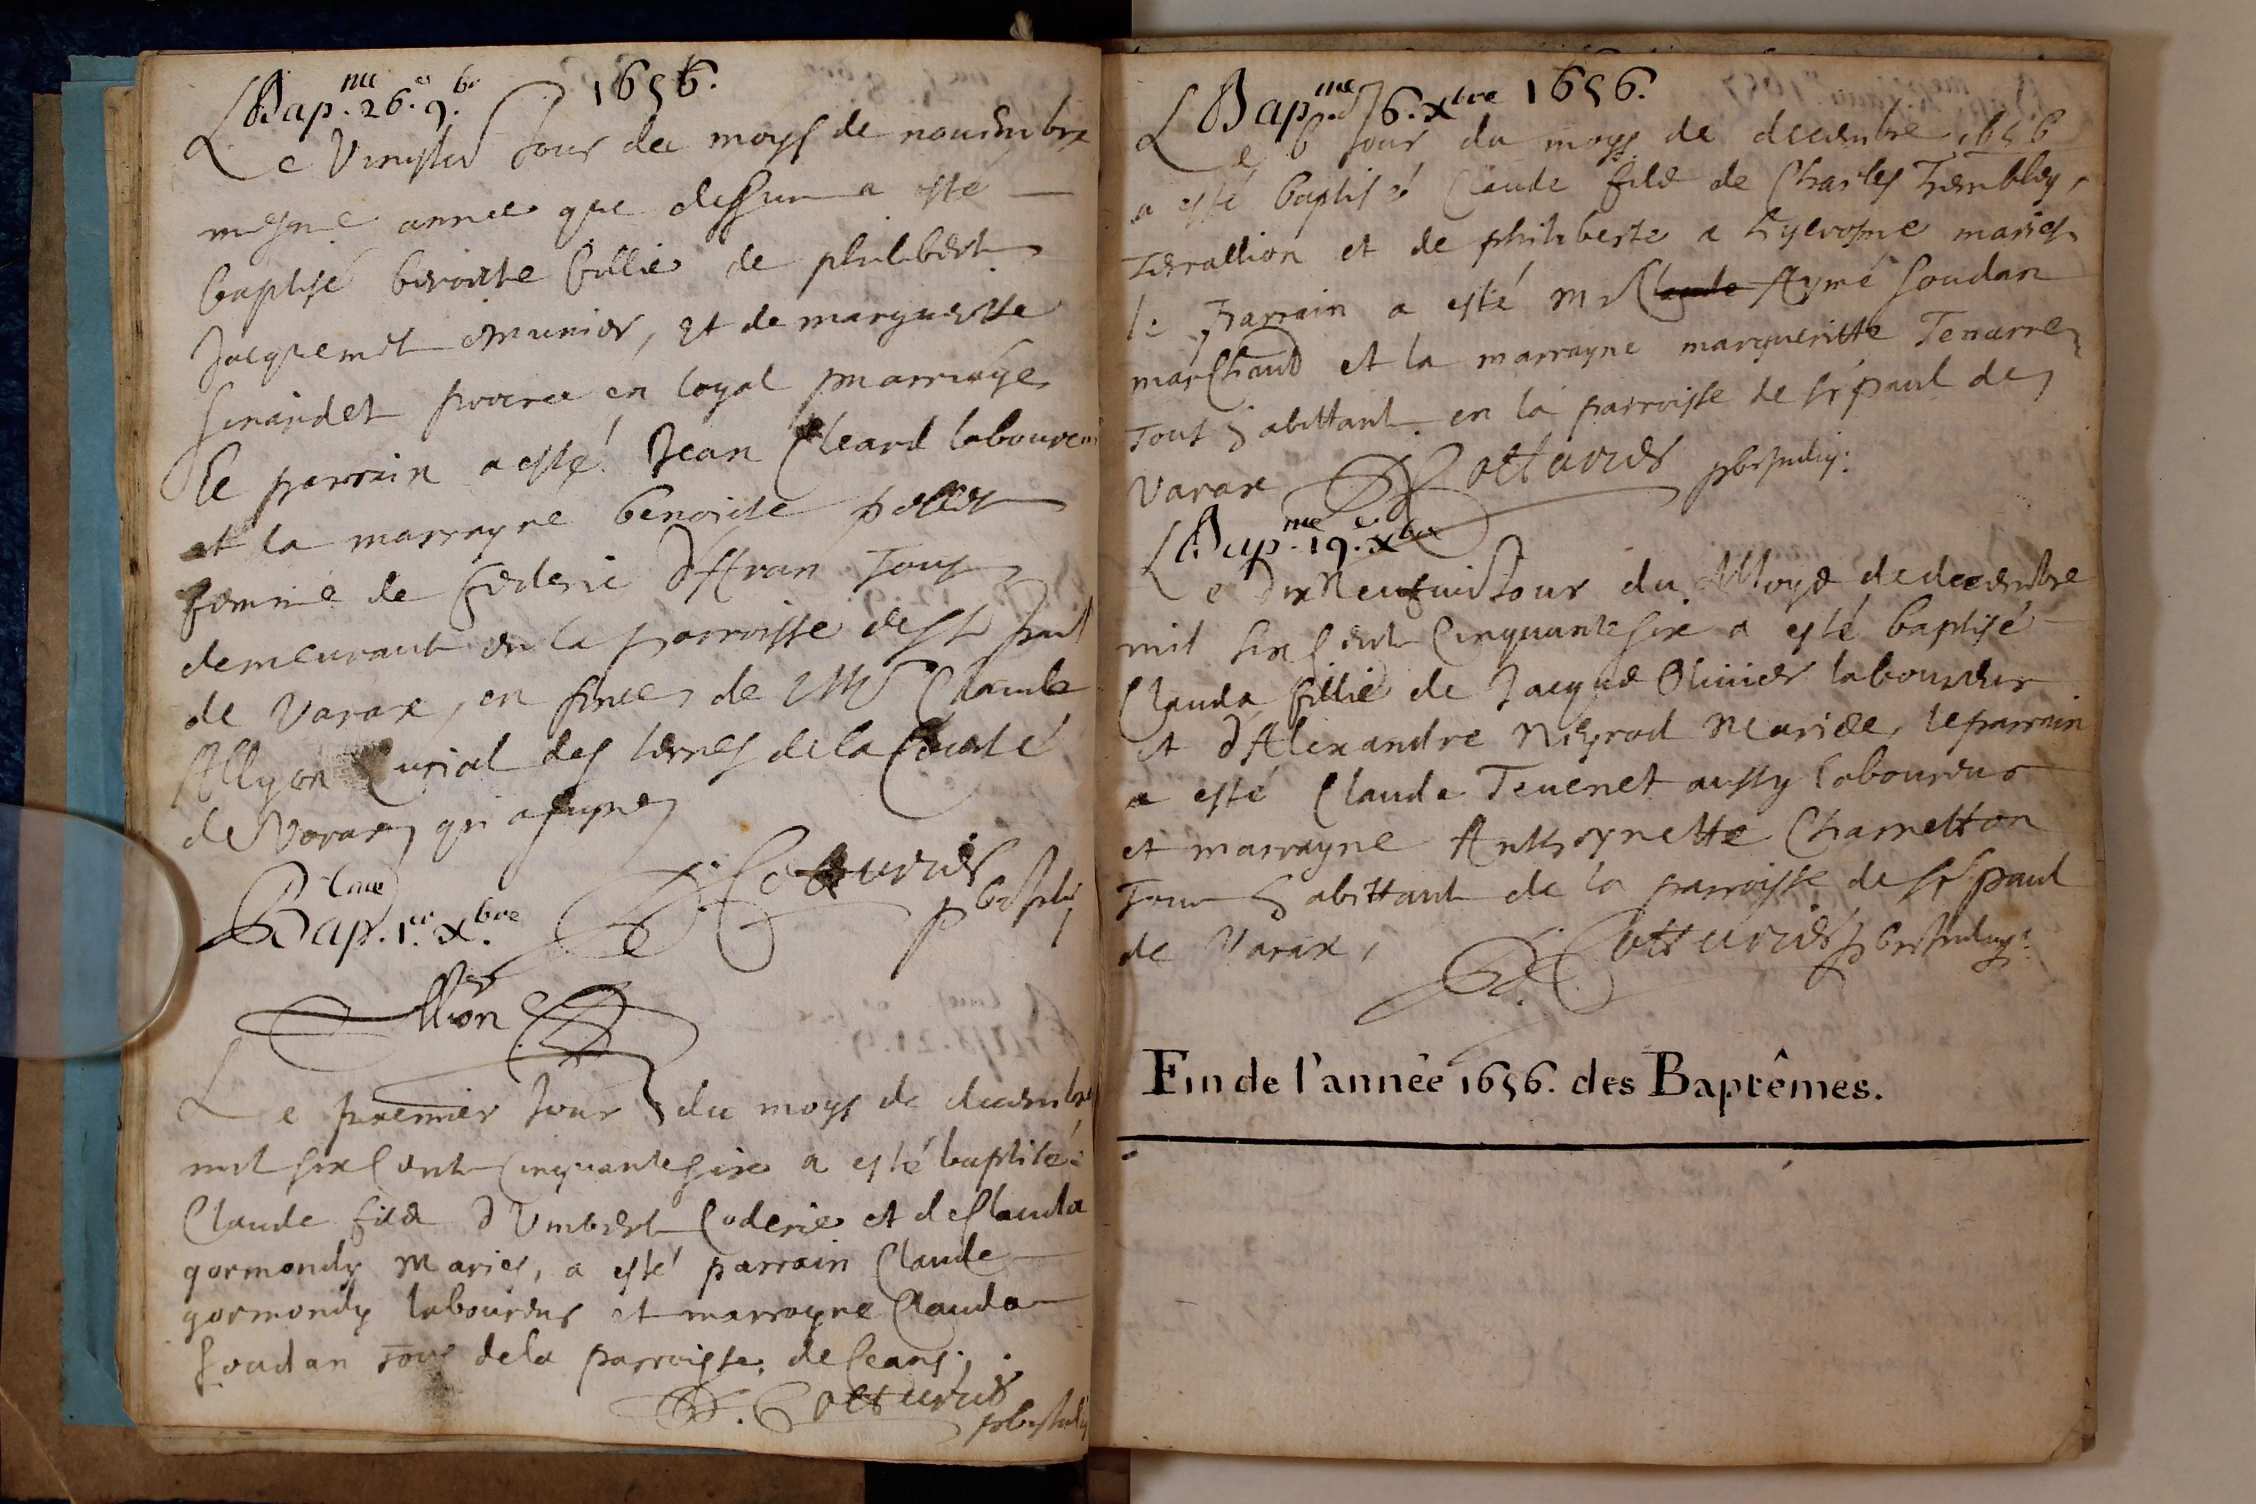 1656.
Bap.me 26.e 9.bre
Le Jour du moys de nouembre
mesme annee que dessus a esté
baptisé benoiste fillie de philibert
Jacquemet munier, et de margueritte
procree en loyal marriage
le parrain a esté Jean Cleard laboureur
et la marrayne benoiste
femme de frederic tous
demeurant en la parroisse de st paul
de Varax, en de Claude
Allyon Curial des terres de la Conté
de Varax qui a signe
Cotturier
Bap.me 1.er X.bre
Allion
Le premier Jour du moys de decembre
mil six Cent Cinquante six a esté baptisé
Claude filz d'Umbert Coderie et de Clauda
gormondy Maries, a esté parrain Claude
gormondy laboureur et marrayne Clauda
Soudan tous de la parroisse de Ceans.
Cotturier
Bap.me 6.X.bre 1656.
Le 6 Jour du moys de decembre 1656
a esté baptisé Claude filz de Charles Trembley,
Terrallion et de philiberte a maries
le parrain a esté Mr Claude Aymé Soudan
marChand et la marrayne margueritte Tenarre
Tous habittant en la parroisse de st paul de
Varax Cotturier
Bap.me 19.e X.bre
Le Dix Neufuie Jour du Moys de decembre
mil six Cent Cinquante six a esté baptisé
Clauda fillie de Jacque Oliuier laboureur
et d'Alexandre Neyrod Maries, le parrain
a esté Claude Teuenet aussy laboureur
et marrayne Anthoynette Charretton
Tous habittant de la parroisse de st paul
de Varax,
Cotturier
Fin de l'année 1656. des Baptêmes.